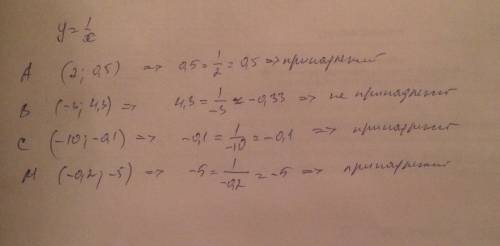 y = 1/x
A (2; 0,5) => 0,5 = 1/2 = 0,5 => принадлежит
B (-3; 4,3) => 4,3 = 1/-3 ≈ -0,33 => не принадлежит
C (-10; -0,1) => -0,1 = 1/-10 = -0,1 => принадлежит
M (-0,2; -5) => -5 = 1/-0,2 = -5 => принадлежит